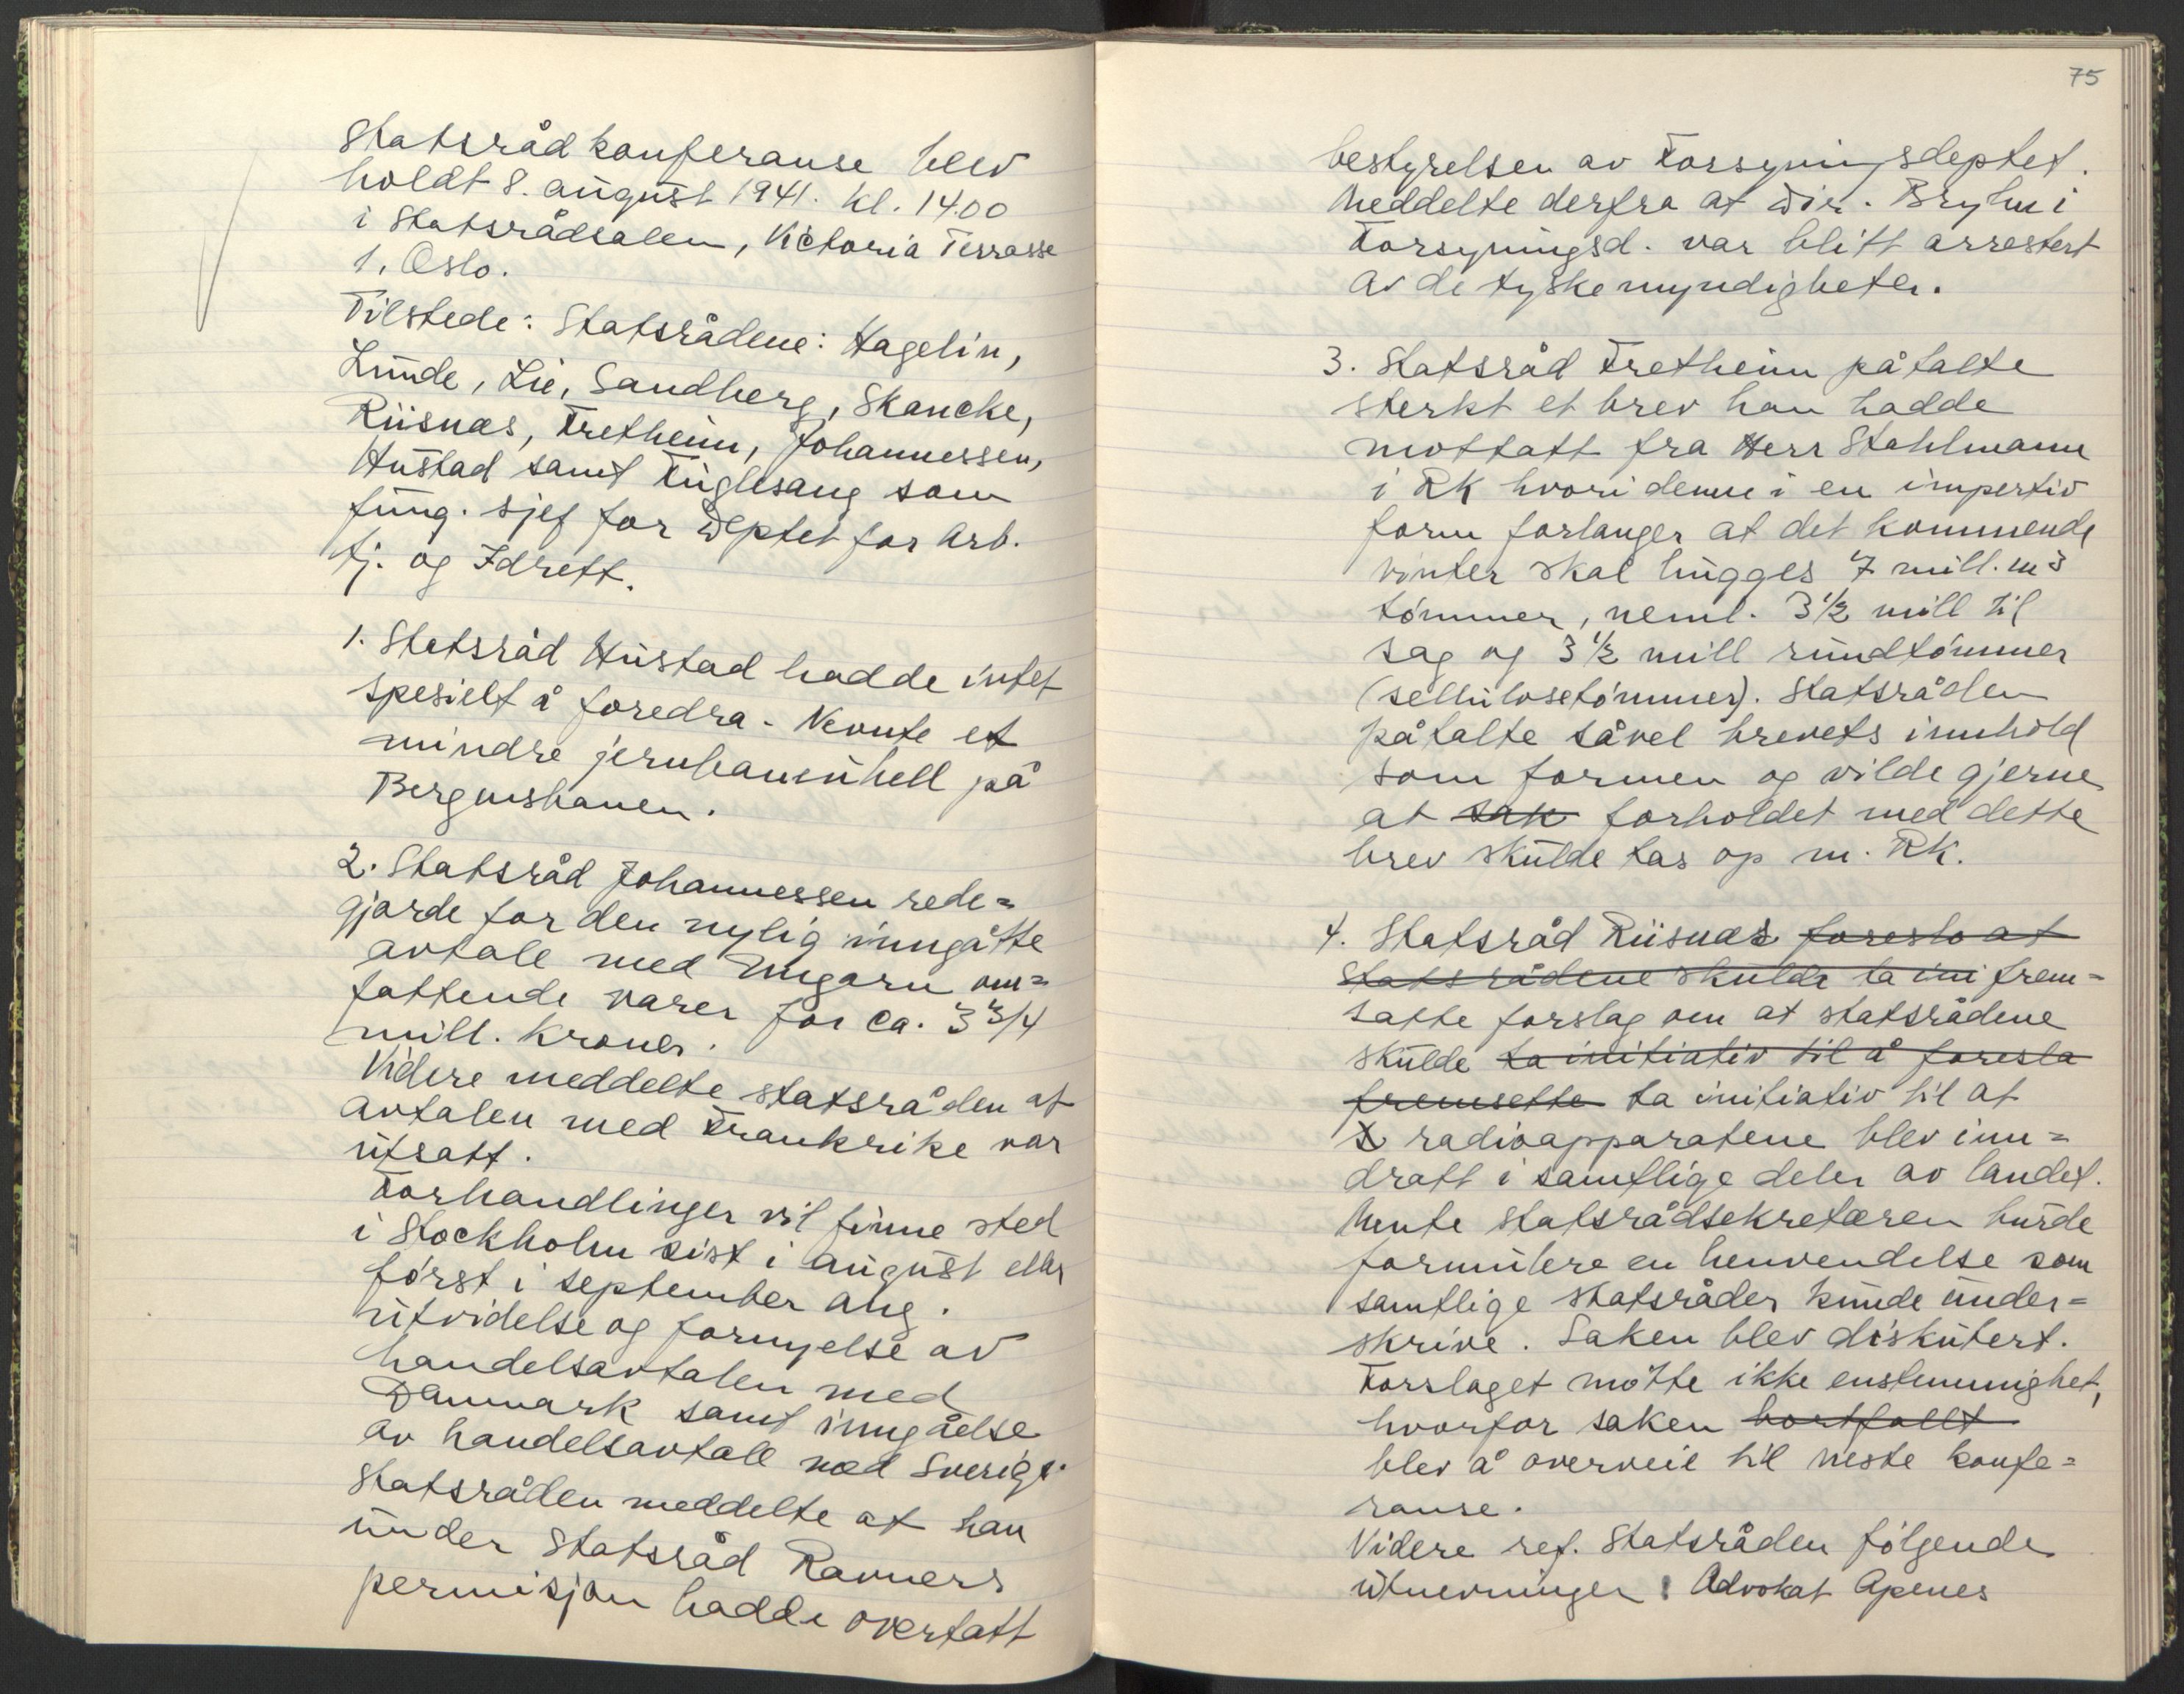 Statsrådkonferanse blev
holdt 8. august 1941. kl. 14.00
i Statsrådsalen, Victoria Terrasse
1, Oslo.
Tilstede: Statsrådene: Hagelin,
Lunde, Lie, Sandberg, Skancke,
Riisnæs, Fretheim, Johannessen,
Hustad samt Fuglesang som
fung. sjef for Deptet for Arb.
tj. og Idrett.
1. Statsråd Hustad hadde intet
spesielt å foredra. Nevnte et
mindre jernbaneuhell på
Bergensbanen.
2. Statsråd Johannessen rede=
gjorde for den nylig inngåtte
avtale med Ungarn om=
fattende varer for ca. 3 3/4
mill. kroner.
Videre meddelte statsråden at
avtalen med Frankrike var
utsatt.
Forhandlinger vil finne sted
i Stockholm sist i august eller
først i september ang.
utvidelse og fornyelse av
handelsavtalen med
Danmark samt inngåelse
av handelsavtale med Sverige.
Statsråden meddelte at han
under Statsråd Ravners
permisjon hadde overtatt
75
bestyrelsen av Forsyningsdeptet.
Meddelte derfra at Dir. Bryhn i
Forsyningsd. var blitt arrestert
av de tyske myndigheter.
3. Statsråd Fretheim påtalte
sterkt et brev han hadde
mottatt fra Herr Stahlmann
i RK hvori denne i en impertiv
form forlanger at det kommende
vinter skal hugges 7 mill. m3
tømmer, neml. 3 1/2 mill til
sag og 3 1/2 mill rundtømmer
(sellulosetømmer). Statsråden
påtalte såvel brevets innhold
som formen og vilde gjerne
at sak forholdet med dette
brev skulde tas op m. RK.
4. Statsråd Riisnæs foreslo at
Statsrådene skulde ta ini frem=
satte forslag om at statsrådene
skulde ta initiativ til å foresla
fremsette ta initiativ til at
radioapparatene blev inn=
dratt i samtlige deler av landet.
Mente statsrådsekretæren burde
formulere en henvendelse som
samtlige statsråder kunde under=
skrive. Saken blev diskutert.
Forslaget møtte ikke enstemmighet,
hvorfor saken bortfallt
blev å overveie til neste konfe=
ranse.
Videre ref. Statsråden følgende
utnevninger: Advokat Apenes